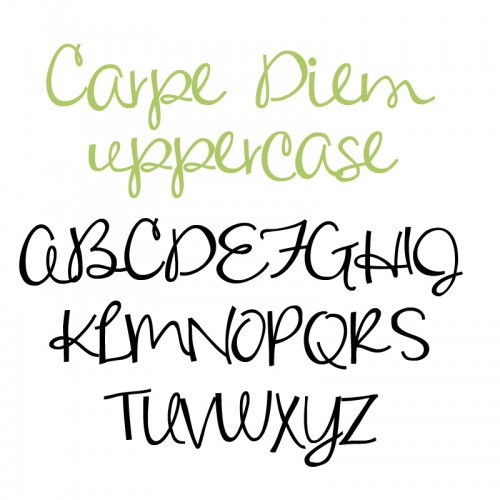 Carpe Diem
uppercase
ABCDEFGHIJ
KLMNOPQRS
TUVWXYZ